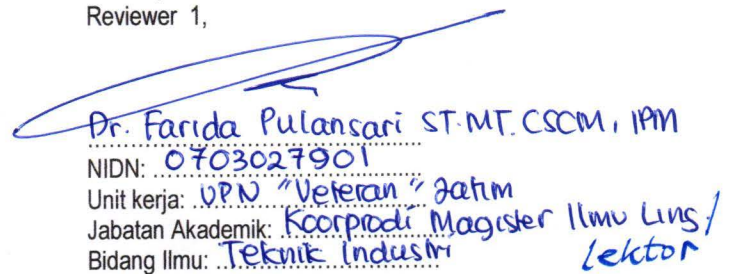 Reviewer 1,
Dr. Farida Pulansari ST.MT. CSCM, IPM
NIDN: 0703027901
Unit kerja: UPN "Veteran" Jatim
Jabatan Akademik: Koorprodi Magister Ilmu Ling/
Bidang Ilmu: Teknik Industri Lektor